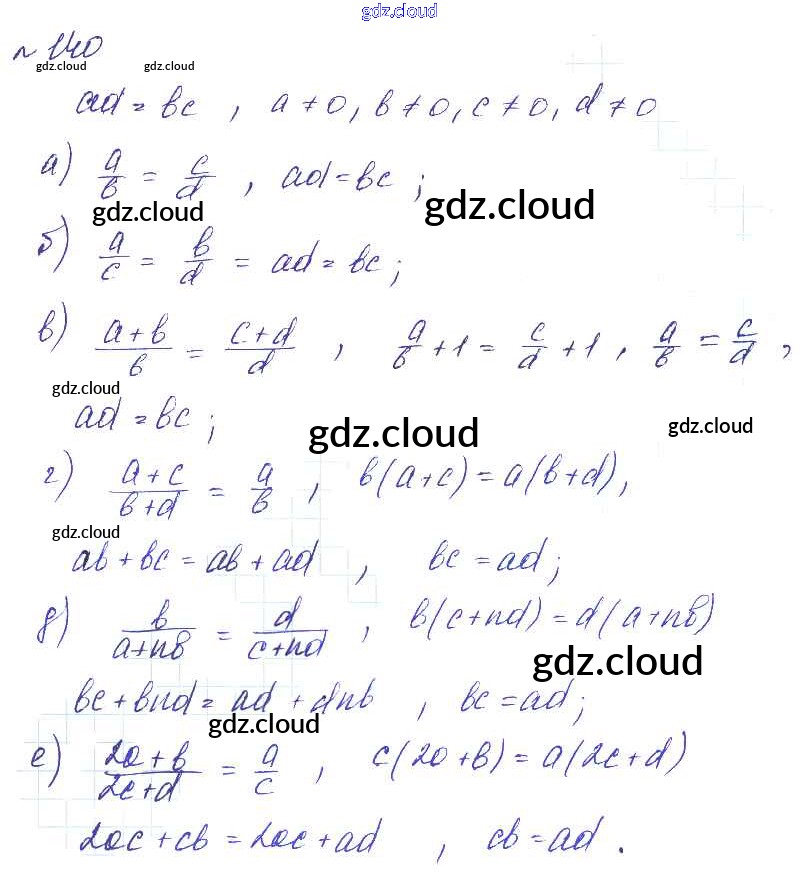 gdz.cloud
№ 140
gdz.cloud gdz.cloud
ad = bc , a ≠ 0, b ≠ 0, c ≠ 0, d ≠ 0
а) a/b = c/d , ad = bc ;
gdz.cloud gdz.cloud
б) a/c = b/d = ad = bc ;
в) (a+b)/b = (c+d)/d , a/b + 1 = c/d + 1 , a/b = c/d ,
gdz.cloud
ad = bc ;
gdz.cloud gdz.cloud
г) (a+c)/(b+d) = a/b , b(a+c) = a(b+d),
gdz.cloud
ab + bc = ab + ad , bc = ad ;
д) b/(a+nb) = d/(c+nd) , b(c+nd) = d(a+nb)
gdz.cloud
bc + bnd = ad + dnb , bc = ad ;
gdz.cloud
е) (2a+b)/(2c+d) = a/c , c(2a+b) = a(2c+d)
2ac + cb = 2ac + ad , cb = ad .